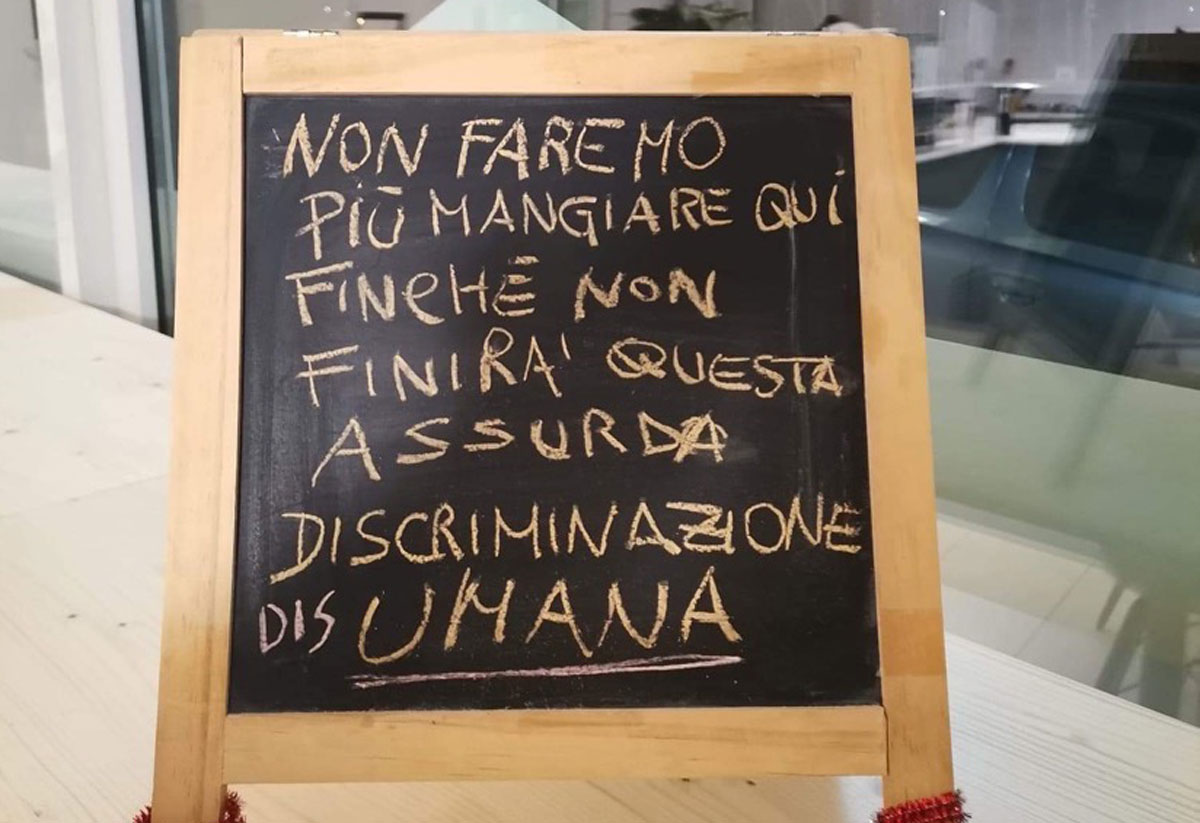 NON FAREMO
PIÙ MANGIARE QUI
FINCHÉ NON
FINIRA' QUESTA
ASSURDA
DISCRIMINAZIONE
DISUMANA